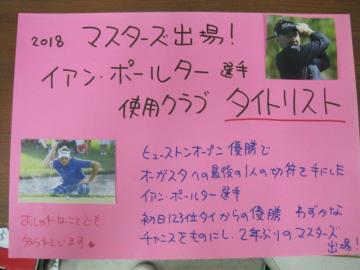 2018 マスターズ出場!
イアン・ポールター選手
使用クラブ タイトリスト
ヒューストンオープン優勝で
オーガスタへの最後の1人の切符を手にした
イアン・ポールター選手
初日123位タイからの優勝 わずかな
チャンスをものにし、2年ぶりのマスターズ
出場!
おしゃれなことでも
知られています